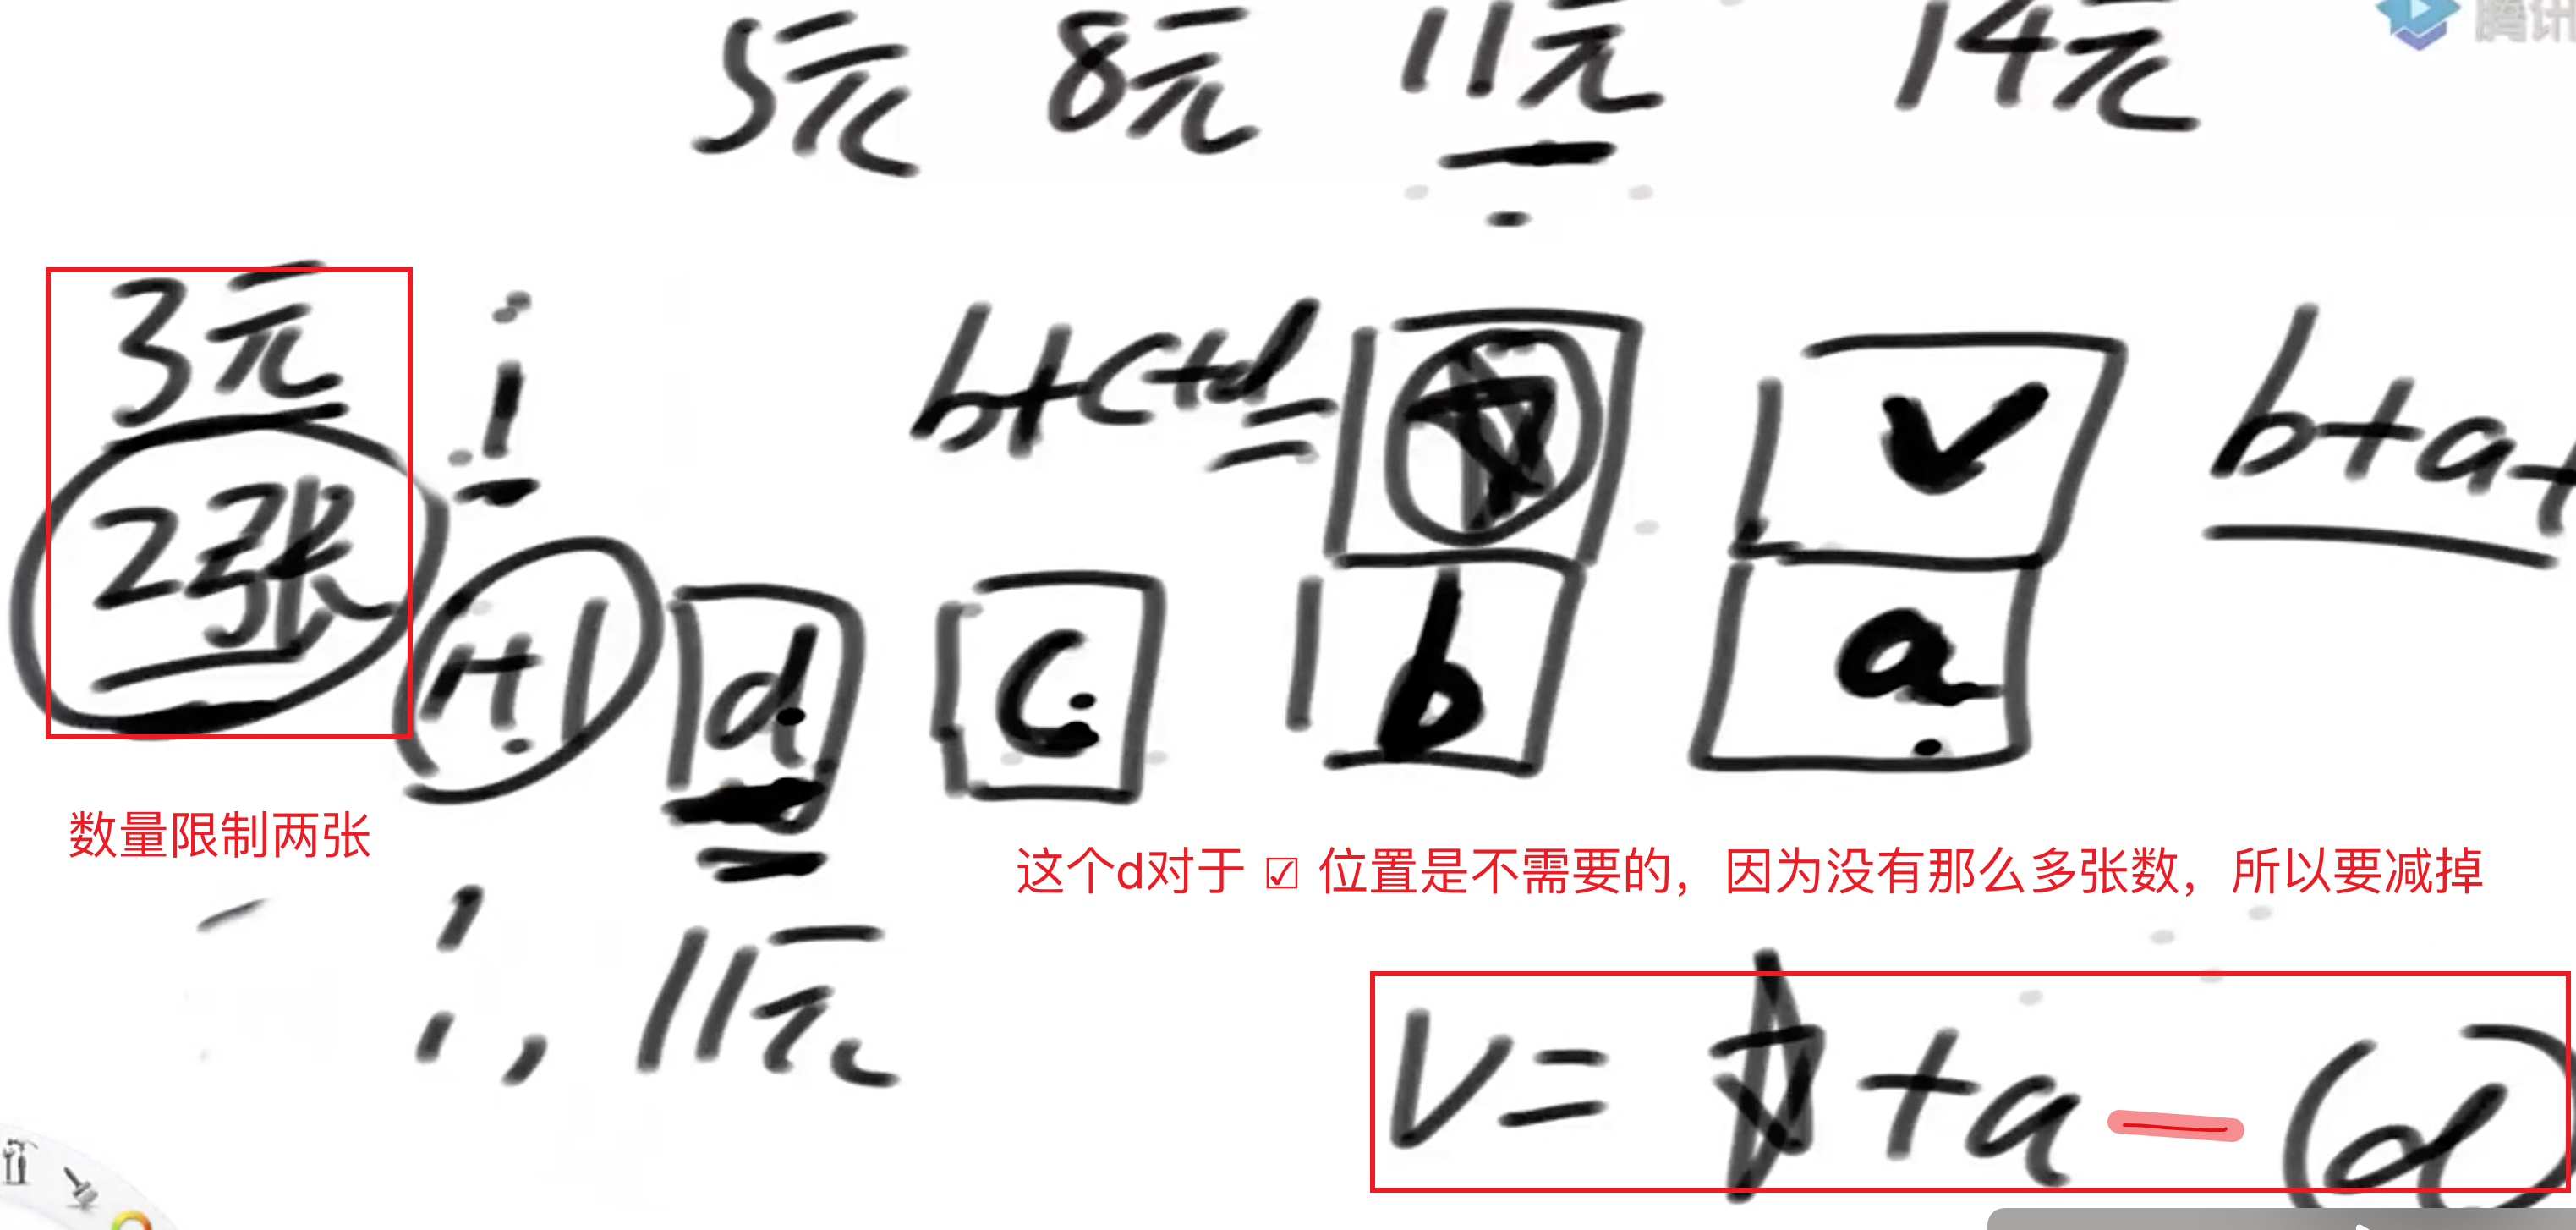 腾讯
5元 8元 11元 14元
3元 i b+c+d= ☆ √ b+a+
2张 i+1 d c b a
数量限制两张
这个d对于 ☑ 位置是不需要的，因为没有那么多张数，所以要减掉
i，11元
√=☆+a-(d)